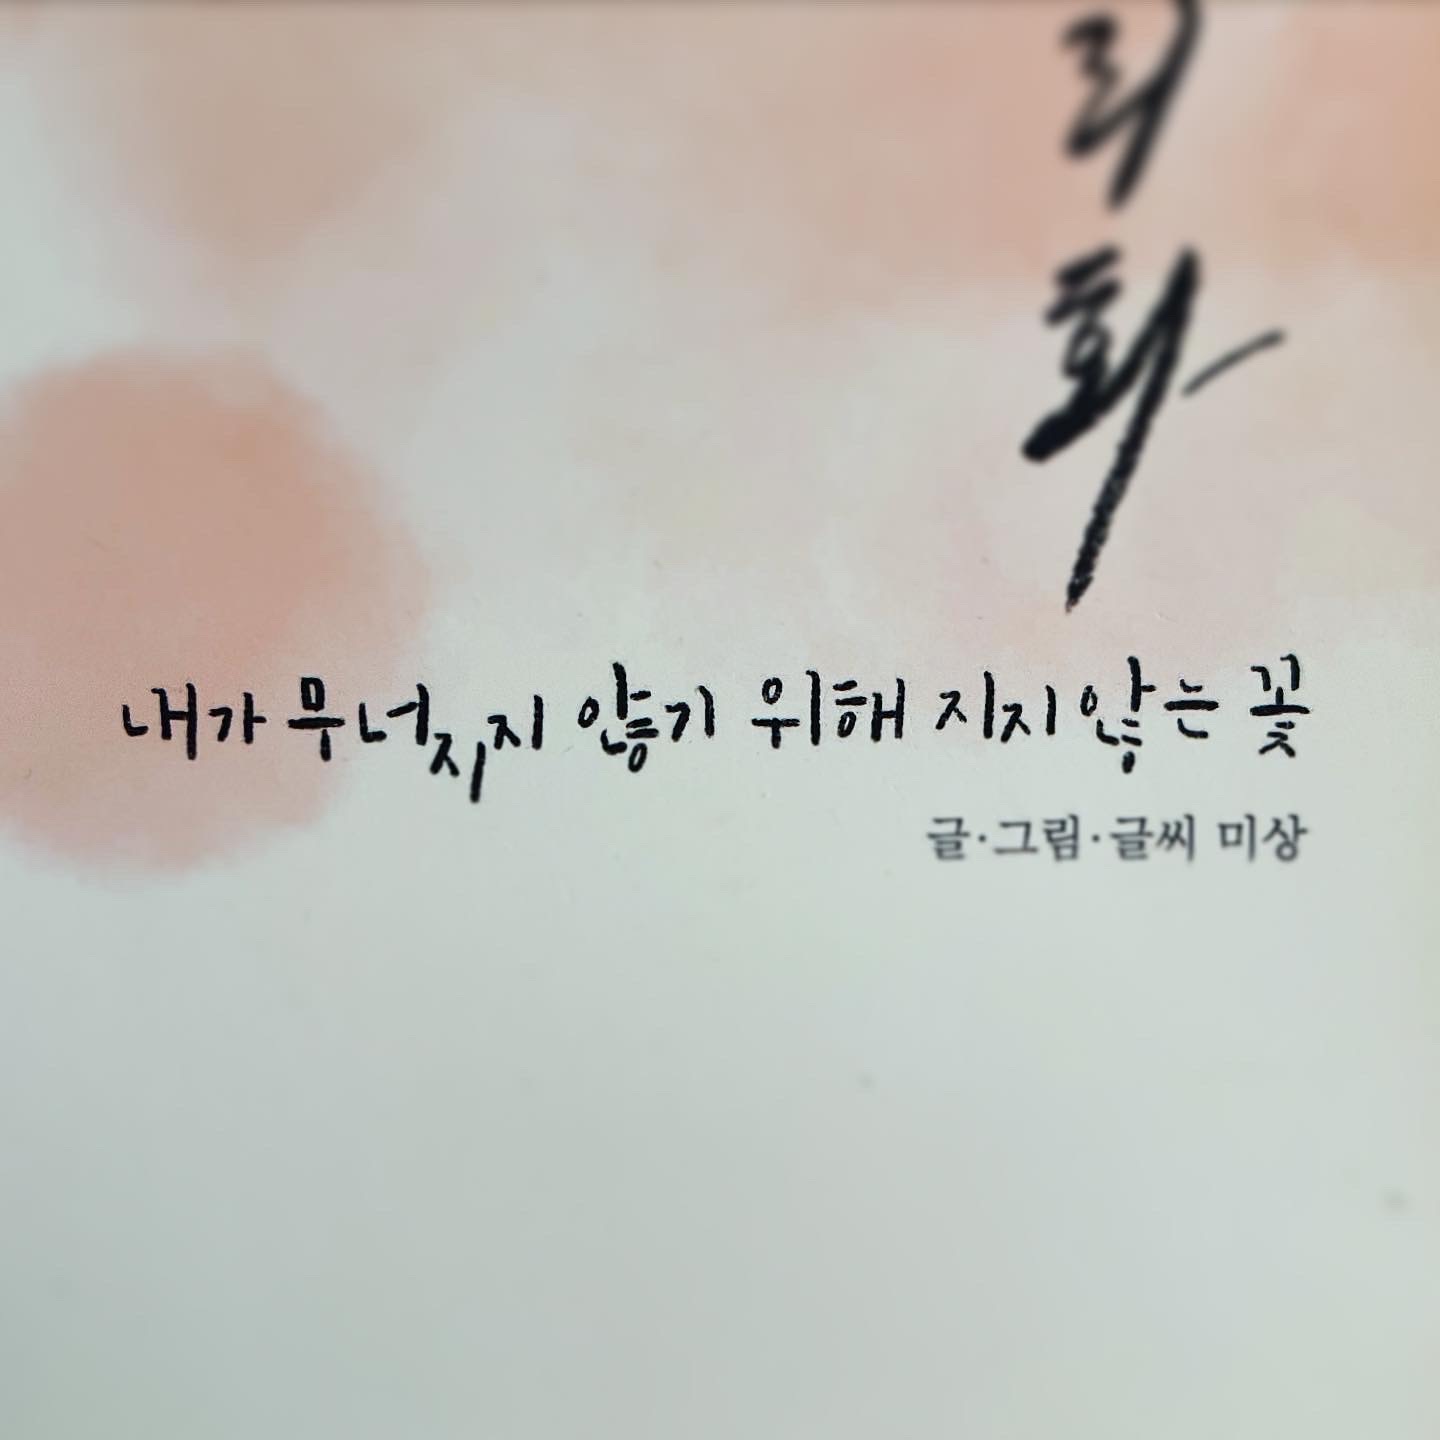 리
화
내가 무너지지 않기 위해 지지 않는 꽃
글·그림·글씨 미상